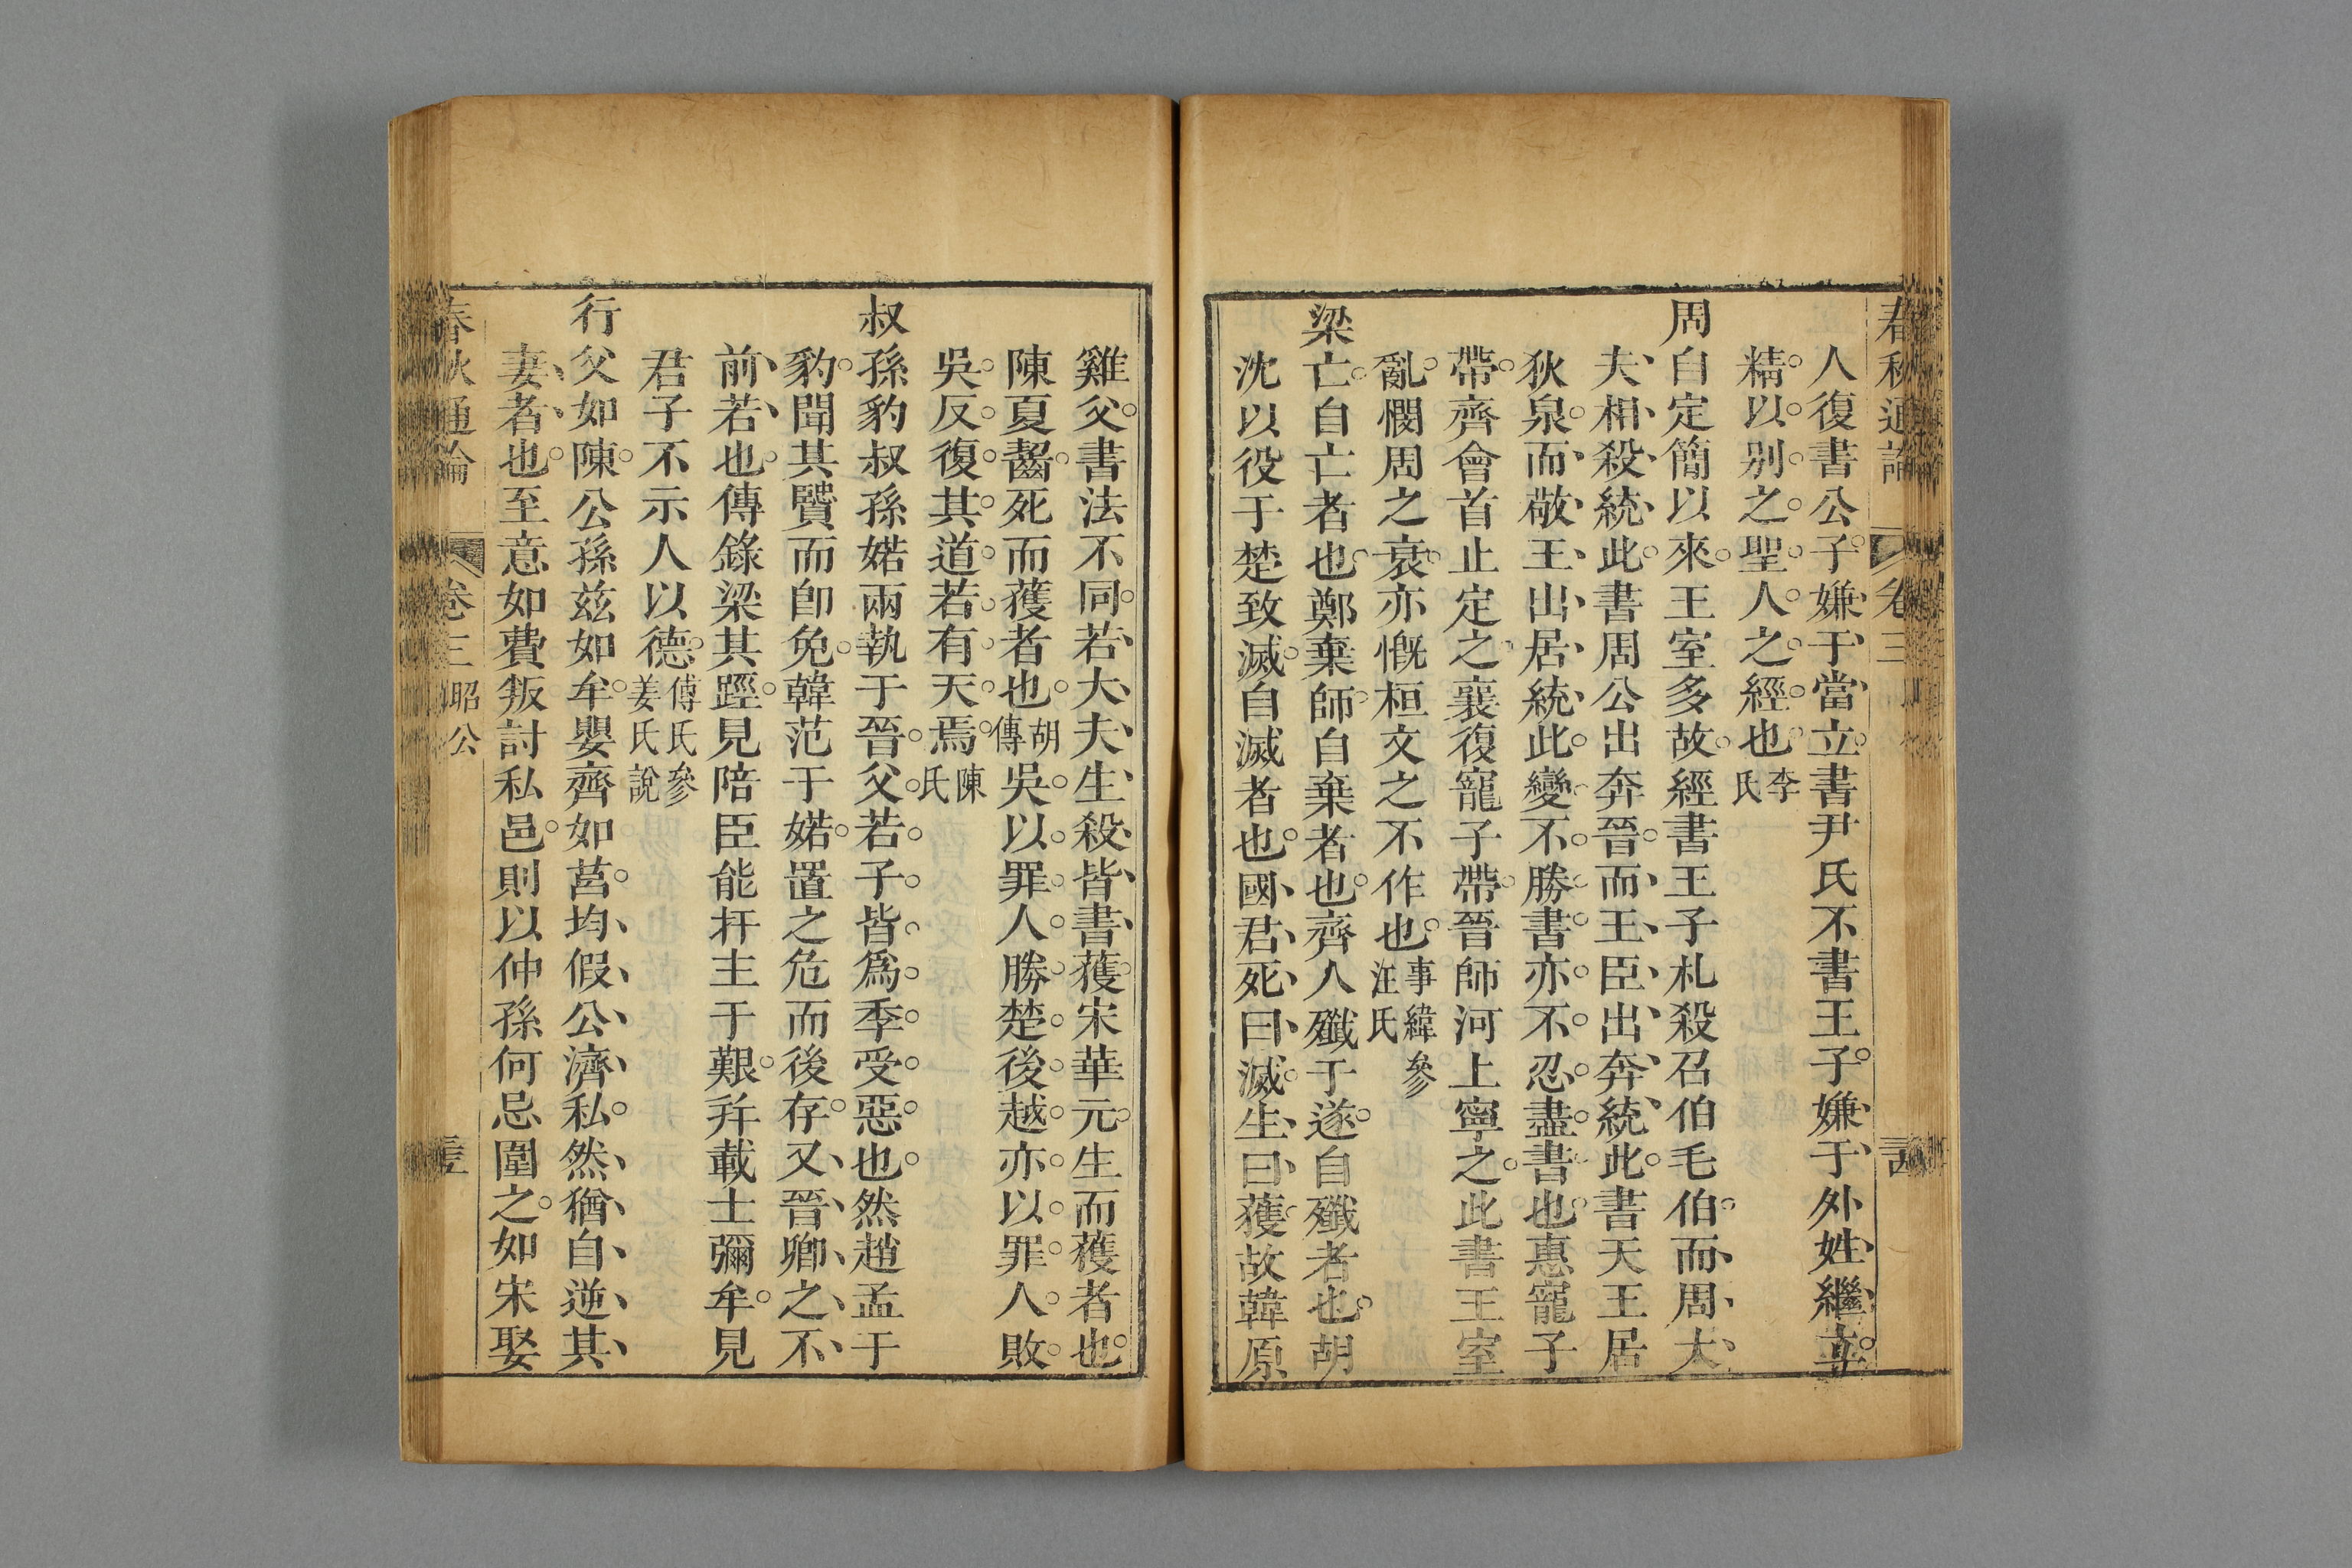 春秋通論 卷三
人復書公子嫌于當立書尹氏不書王子嫌于外姓繼立
精以別之聖人之經也李氏
周自定簡以來王室多故經書王子札殺召伯毛伯而周大
夫相殺統此書周公出奔晉而王臣出奔統此書天王居
狄泉而敬王出居統此變不勝書亦不忍盡書也惠寵子
帶齊會首止定之襄復寵子帶晉師河上寧之此書王室
亂憫周之衰亦慨桓文之不作也事緯參汪氏
梁亡自亡者也鄭棄師自棄者也齊人殲于遂自殲者也胡
沈以役于楚致滅自滅者也國君死曰滅生曰獲故韓原
雞父書法不同若大夫生殺皆書獲宋華元生而獲者也
陳夏齧死而獲者也胡傳吳以罪人勝楚後越亦以罪人敗
吳反復其道若有天焉陳氏
叔孫豹叔孫婼兩執于晉父若子皆爲季受惡也然趙孟于
豹聞其賢而卽免韓范于婼置之危而後存又晉卿之不
前若也傳錄梁其踁見陪臣能扞主于艱幷載士彌牟見
君子不示人以德傅氏參姜氏說
行父如陳公孫茲如牟嬰齊如莒均假公濟私然猶自逆其
妻者也至意如費叛討私邑則以仲孫何忌圍之如宋娶
春秋通論 卷三 昭公